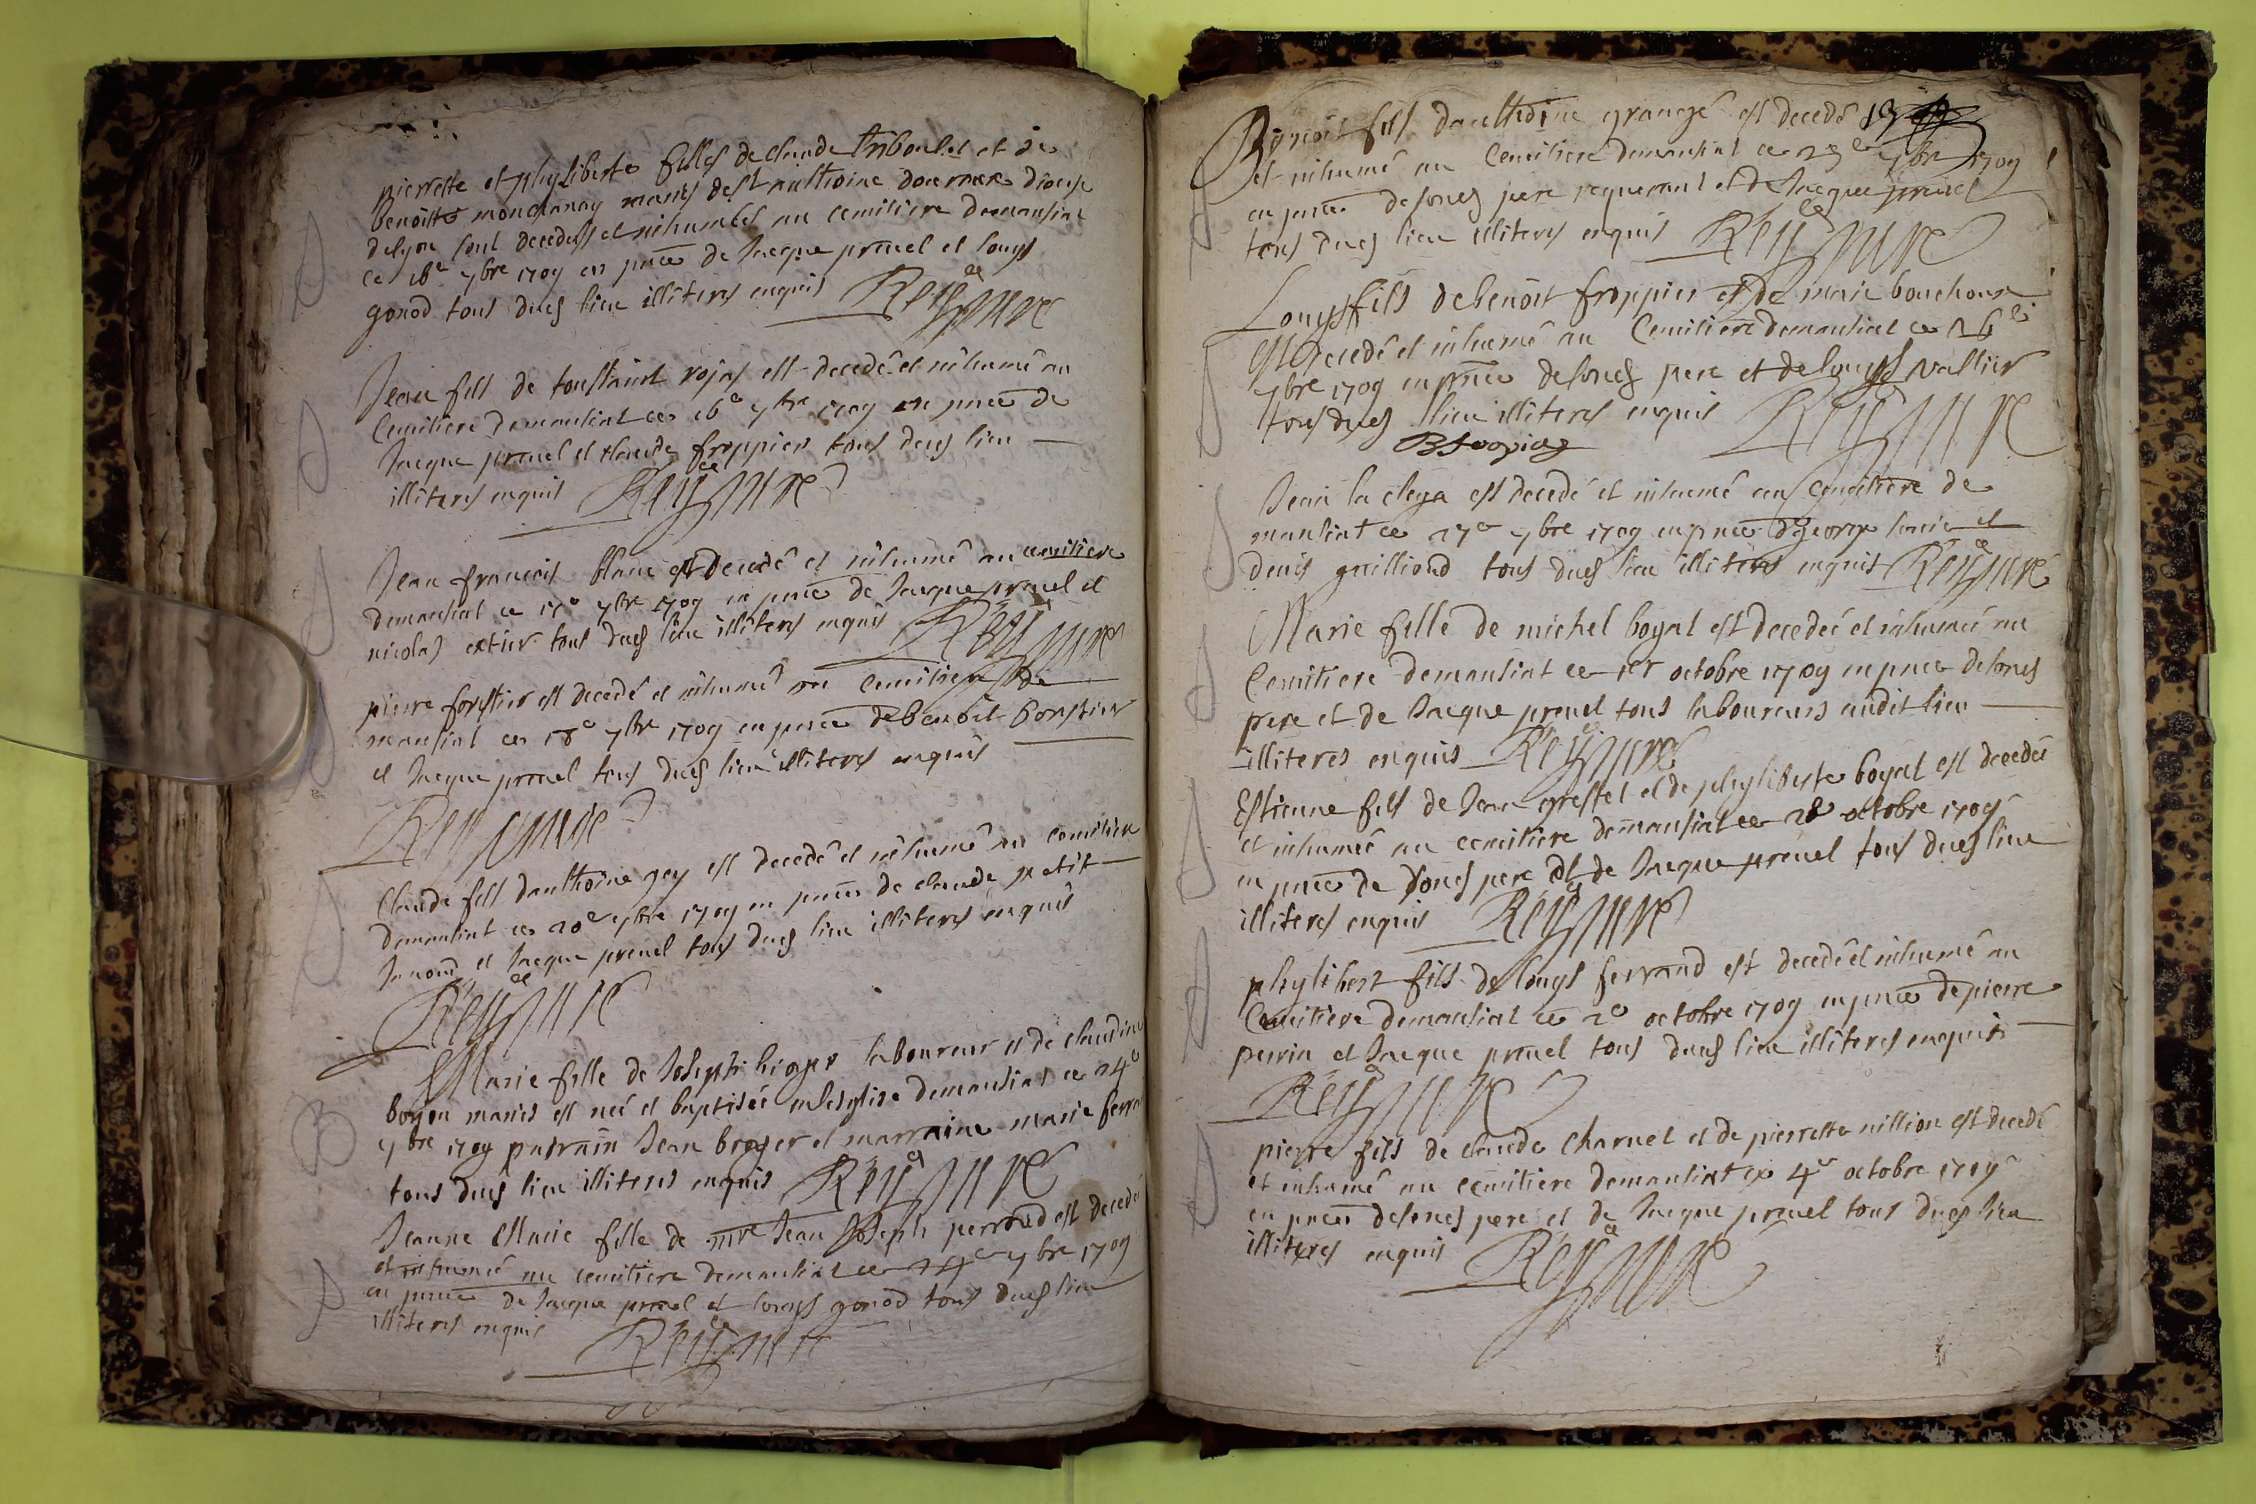 pierrette et phyliberte filles de claude triboulet et de
benoiste monchanay mariés de st anthoine douroux diocese
de lyon sont decedess et inhumées au cemitiere demansiat
ce 16e 7bre 1709 en pnce de Jacque pravel et louys
gonod tous dues lieu illiteres enquis Reyssure
Jean fils de toussaint rojas est decedé et inhumé au
Cemitiere demansiat ce 16e 7bre 1709 en pnce de
Jacque pravel et claude froppier tous dues lieu
illiteres enquis Reyssure
Jean francois blanc est decedé et inhumé au cemitiere
demansiat ce 17e 7bre 1709 en pnce de Jacque pravel et
nicolas tous dues lieu illiteres enquis Reyssure
pierre forestier est decedé et inhumé au Cemitiere de
mansiat ce 18e 7bre 1709 en pnce de benoit
et Jacque pravel tous dues lieu illiteres enquis
Reyssure
Claude fils danthoine gey est decedé et inhumé au cemitiere
demansiat ce 20e 7bre 1709 en pnce de claude petit
Janond et Jacque prevel tous dues lieu illiteres enquis
Reyssure
B
Marie fille de Joseph laboureur et de claudine
boyon mariés est neé et baptiseé en lesglise demansiat ce 24e
7bre 1709 parrain Jean broyer et marraine marie
tous dues lieu illiteres enquis Reyssure
Jeanne Marie fille de mre Jean Joseph perroud est decedeé
et inhumeé au cemitiere demansiat ce 24e 7bre 1709
en pnce de Jacque pravel et louys gonod tous dues lieu
illiteres enquis Reyssure
Benoit fils danthoine grangé est decedé
et inhumé au Cemitiere demansiat ce 7bre 1709
en pnce de sondes pere requerant et de Jacque pravel
tous dues lieu illiteres enquis Reyssure
Louys fils de benoit froppier et de marie bouchoux
est decedé et inhumé au Cemitiere demansiat ce 26e
7bre 1709 en pnce de sondes pere et de louys vallier
tous dues lieu illiteres enquis Reyssure
B fropier
Jean la cleya est decedé et inhumé au cemitiere de
mansiat ce 27e 7bre 1709 en pnce de george et
denis guilliond tous dues lieu illiteres enquis Reyssure
Marie fille de michel boyat est decedeé et inhumeé au
Cemitiere demansiat ce 1er octobre 1709 en pnce de sondes
pere et de Jacque prevel tous laboureurs audit lieu
illiteres enquis Reyssure
Estienne fils de Jean greffet et de phyliberte boyat est decedeé
et inhumeé au cemitiere demansiat ce 2e octobre 1709
en pnce de sondes pere et de Jacque prevel tous dues lieu
illiteres enquis Reyssure
phylibert fils de louys ferrand est decedé et inhumé au
Cemitiere demansiat ce 2e octobre 1709 en pnce de pierre
perrin et Jacque pravel tous dues lieu illiteres enquis
Reyssure
pierre fils de claude Charvet et de pierrette million est decedé
et inhumé au cemitiere demansiat ce 4e octobre 1709
en pnce de sondes pere et de Jacque pravel tous dues lieu
illiteres enquis Reyssure